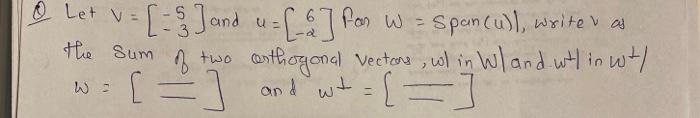 ① Let v = [-5 -3] and u = [6 -2] for W = Span(u), write v as
the Sum of two orthogonal vectors, w| in W| and w⊥| in w⊥|
w = [ = ] and w⊥ = [ = ]